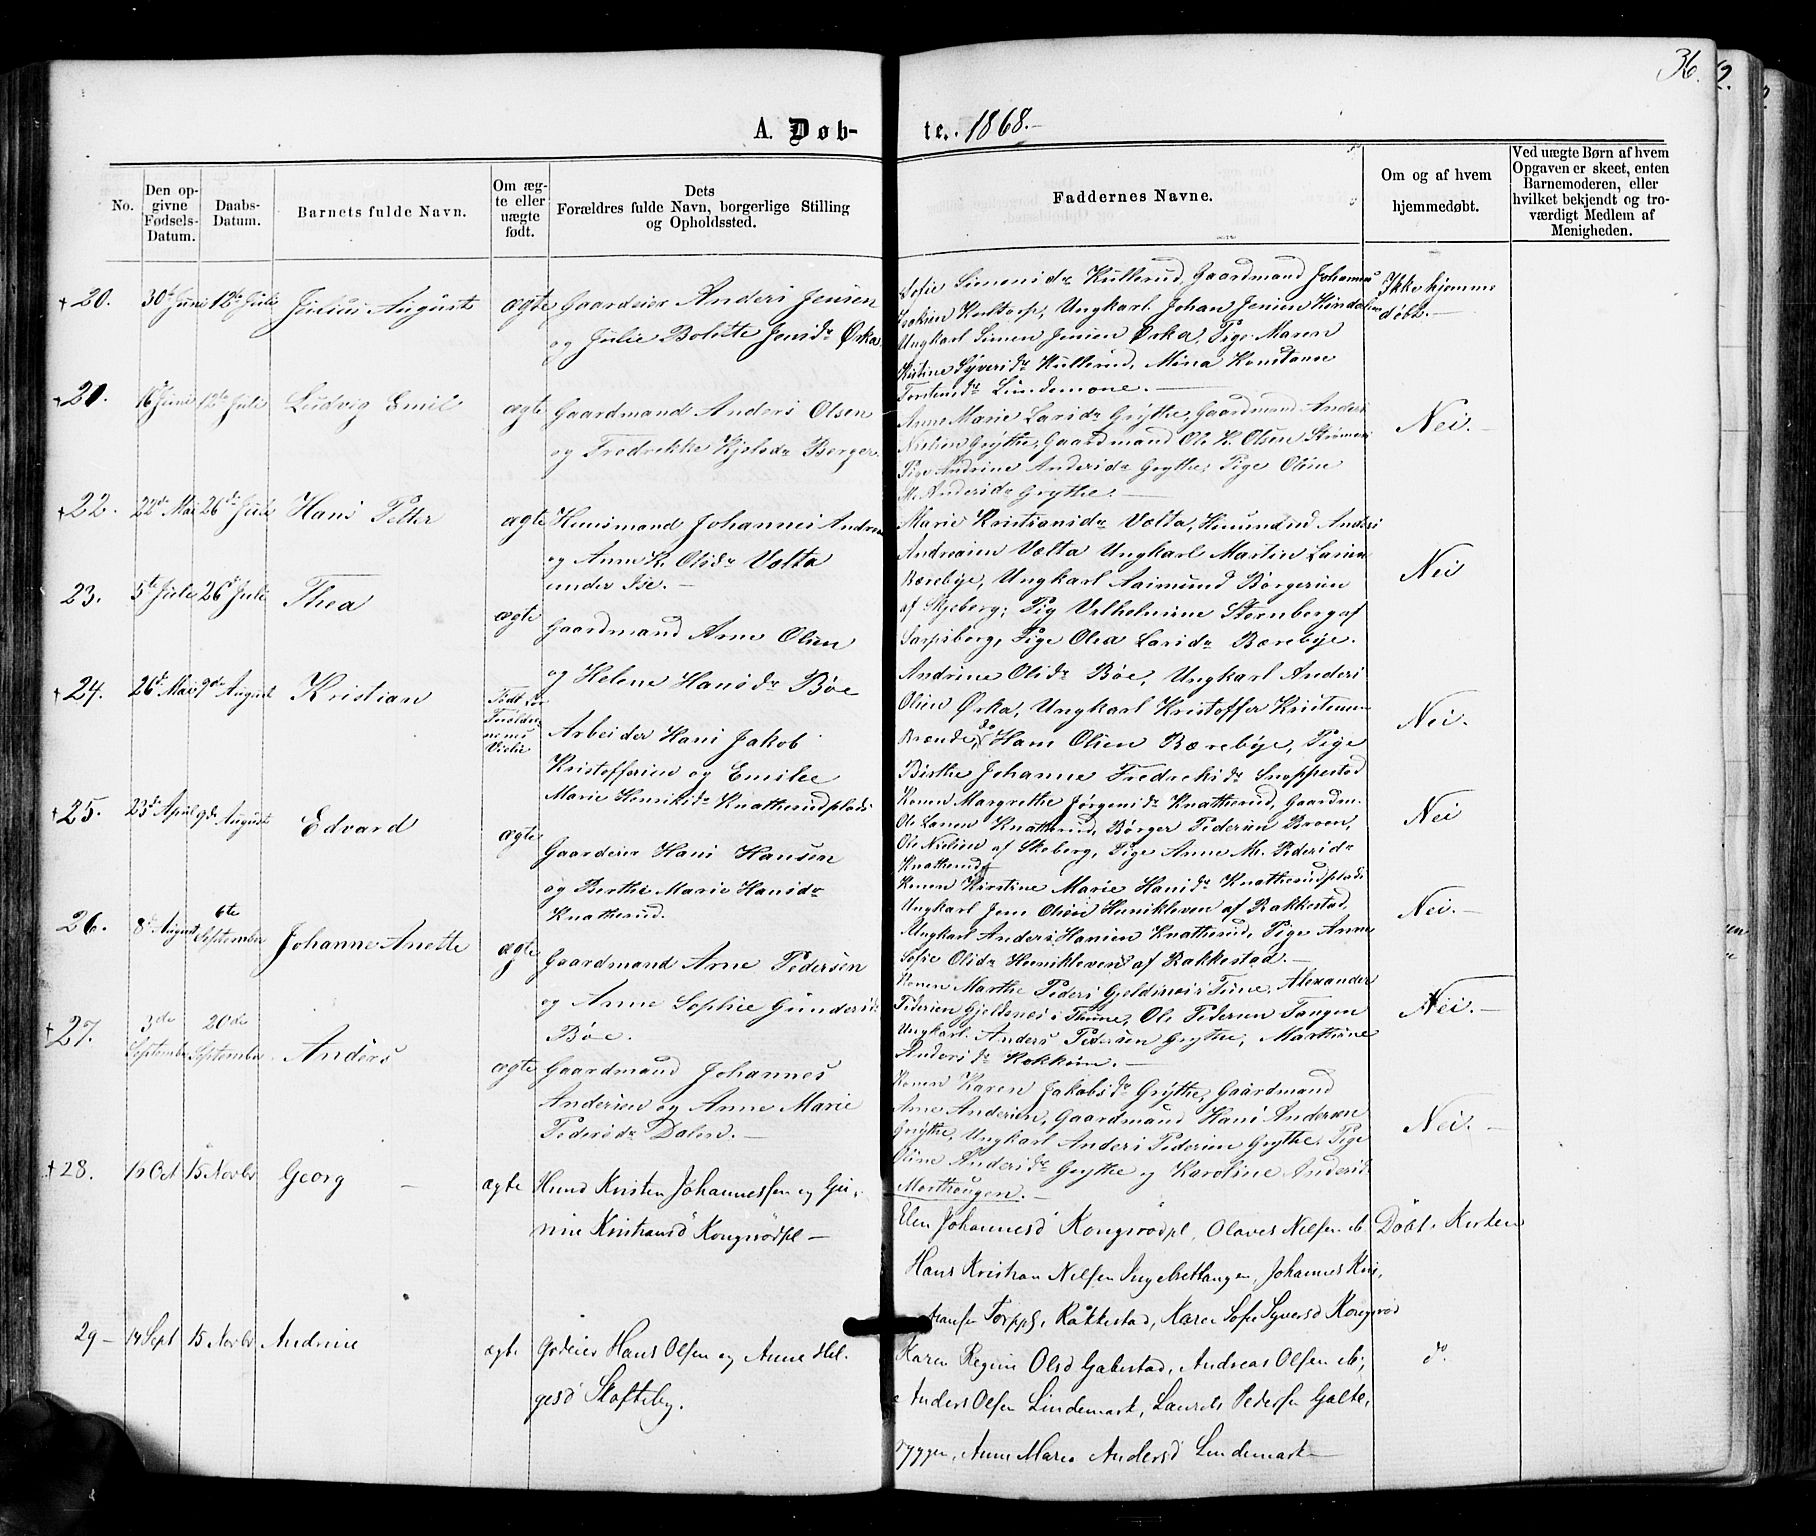 36.
A. Døb- te. 1868.-
No.
Den opgivne Fødsels-Datum.
Daabs-Datum.
Barnets fulde Navn.
Om ægte eller uægte født.
Dets
Forældres fulde Navn, borgerlige Stilling
og Opholdssted.
Faddernes Navne.
Om og af hvem
hjemmedøbt.
Ved uægte Børn af hvem
Opgaven er skeet, enten
Barnemoderen, eller
hvilket bekjendt og tro-
værdigt Medlem af
Menigheden.
+20. 30te Juni 12te Julie Julius August ægte Gaardeier Anders Jensen
og Julie Bolette Jensdr Ørka
Sofie Simensdr Kullerud, Gaardmand Johannes
Kultorp, Ungkarl Johan Jensen
Ungkarl Simen Jensen Ørka, Pige Maren
Kristine Syversdr Kullerud, Mina Konstanse
Torstensdr Lundemone.-
Ikke hjemme
døbt.-
+21. 16de Juni 12te Juli Ludvig Emil ægte Gaardmand Anders Olsen
og Fredrikke Kjelsdr Berger
Anne Marie Larsdr Grythe, Gaardmand Anders
Nielsen Grythe, Gaardmand Ole K. Olsen
Pige Andrine Andersdr Grythe, Pige Oline
M. Andersdr Grythe.-
Nei.-
+22. 22de Mai 26de Juli Hans Petter ægte Huusmand Johannes
og Anne K. Olsdr Vølta
under Ise.-
Marie Kristiansdr Vølta, Huusmand Anders
Andreasen Vølta Ungkarl Martin Larsen
Bærebye, Ungkarl Aasmund Børgersen
af Skjeberg, Pig Vilhelmine Stornberg af
Sarpsborg, Pige Olea Larsdr Bærebye.
Nei
23. 5te Juli 26de Juli Thea ægte Gaardmand Arne Olsen
og Helene Hansdr Bøe
Andrine Olsdr Bøe, Ungkarl Anders
Olsen Ørka, Ungkarl Kristoffer Kristensen
Brænde, do Hans Olsen Bærebye, Pige
Birthe Johanne Fredriksdr Snoppestad
Nei.
+24. 26de Mai 9de August Kristian Født før
Forældrenes
Vielse
Arbeider Hans Jakob
Kristoffersen og Emilie
Marie Henriksdr Knatterudplads
Konen Margrethe Jørgensdr Knatterud, Gaardm.
Ole Larsen Knatterud, Børger Pedersen Broen,
Ole Nielsen af Skeberg, Pige Anne M. Pedersdr
Knatterud
Nei
+25. 23de April 9de August Edvard ægte Gaardeier Hans Hansen
og Berthe Marie Hansdr
Knatterud.
Konen Kirstine Marie Hansdr Knatterudplads
Ungkarl Jens Olsen Hunikleven af Rakkestad,
Ungkarl Anders Hansen Knatterud, Pige Anne
Sofie Olsdr Hunikleven af Rakkestad.-
Nei.-
26. 8de August 6te September Johanne Anette ægte Gaardmand Arne Pedersen
og Anne Sophie Gundersdr
Bøe.
Konen Marthe Peders Gjeldsnes i Tune, Alexander
Pedersen Gjeldsnes i Thune, Ole Pedersen Tangen
Ungkarl Anders Pedersen Grythe, Marthine
Andersdr Kokkim.-
Nei.-
+27. 3de September 20de September Anders ægte Gaardmand Johannes
Andersen og Anne Marie
Pedersdr Dalen.-
Konen Karen Jakobsdr Grythe, Gaardmand
Arne Andersen, Gaardmand Hans Andersen
Grythe, Ungkarl Anders Pedersen Grythe, Pige
Oline Andersdr Grythe og Karoline Andersdr
Morthaugen.-
Nei.-
+28. 15 Novbr Georg - ægte Husmd Kristen Johannessen og
Kristiansd Kongsrødpl -
Elen Johannesd Kongsrødpl, Olaves Nilsen ib
Hans Kristian Nilsen Ingelsrettangen, Johannes
Torppl, Rakkestad, Karen Sofie Syversd Kongsrød
Døbt i Kirken
29- 14 Sept 15 Novbr Andrine ægte Grdeier Hans Olsen og Anne Hel-
gesd Skofteby.
Karen Regine Olsd Gabestad, Andreas Olsen ib,
Anders Olsen Lindemark, Laurits Pedersen Galte-
ryggen, Anne Maria Andersd Lindemark-
do